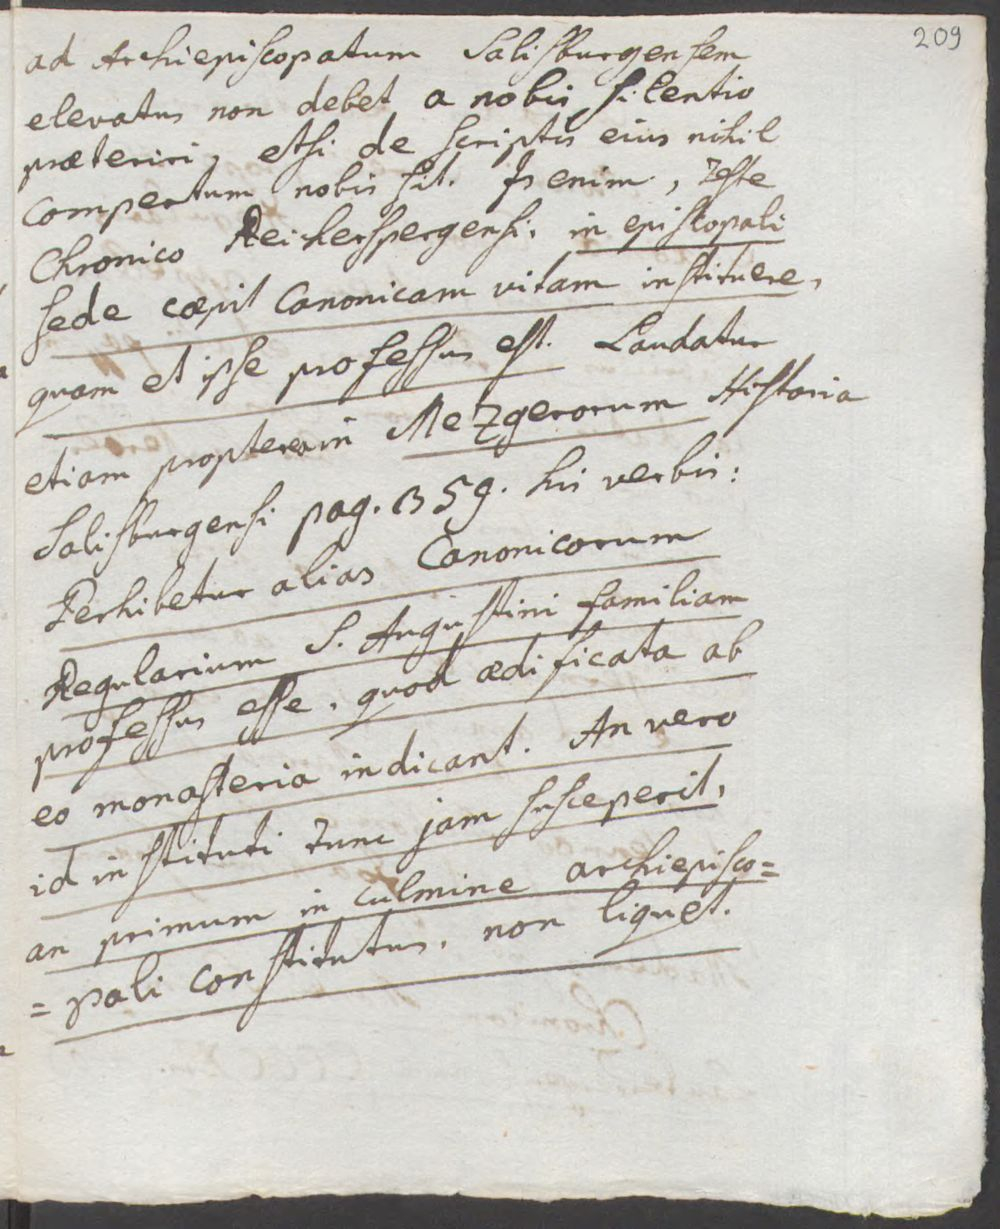 209
ad Archiepiscopatum Salisburgensem
elevatus non debet a nobis silentio
præteriri, etsi de scriptis eius nihil
compertum nobis sit. Is enim, teste
Chronico Reicherspergensi, in episcopali
sede cœpit Canonicam vitam instituere,
quam et ipse professus est. Laudatur
etiam propterea in Mezgerorum Historia
Salisburgensi pag. 359. his verbis:
Perhibetur alias Canonicorum
Regularium S. Augustini familiam
professus esse, quod ædificata ab
eo monasteria indicant. An vero
id instituti tunc jam susceperit,
an primum in culmine archiepisco=
=pali constitutus, non liquet.